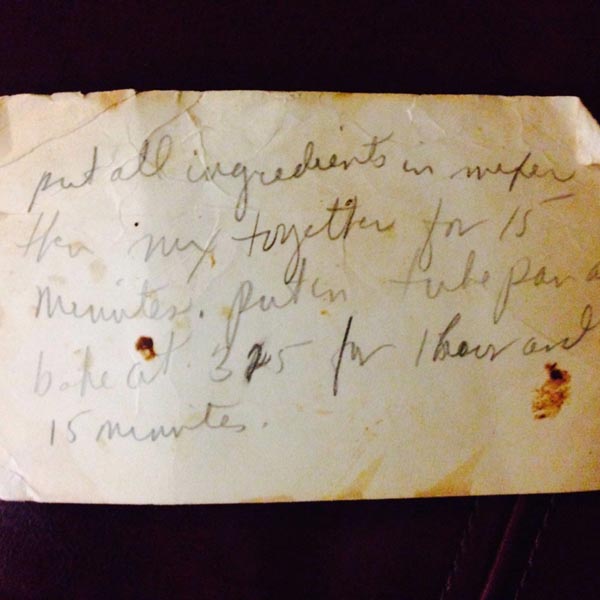 put all ingredients in mixer
then mix together for 15
minutes. put in tube pan a
bake at 325 for 1 hour and
15 minutes.